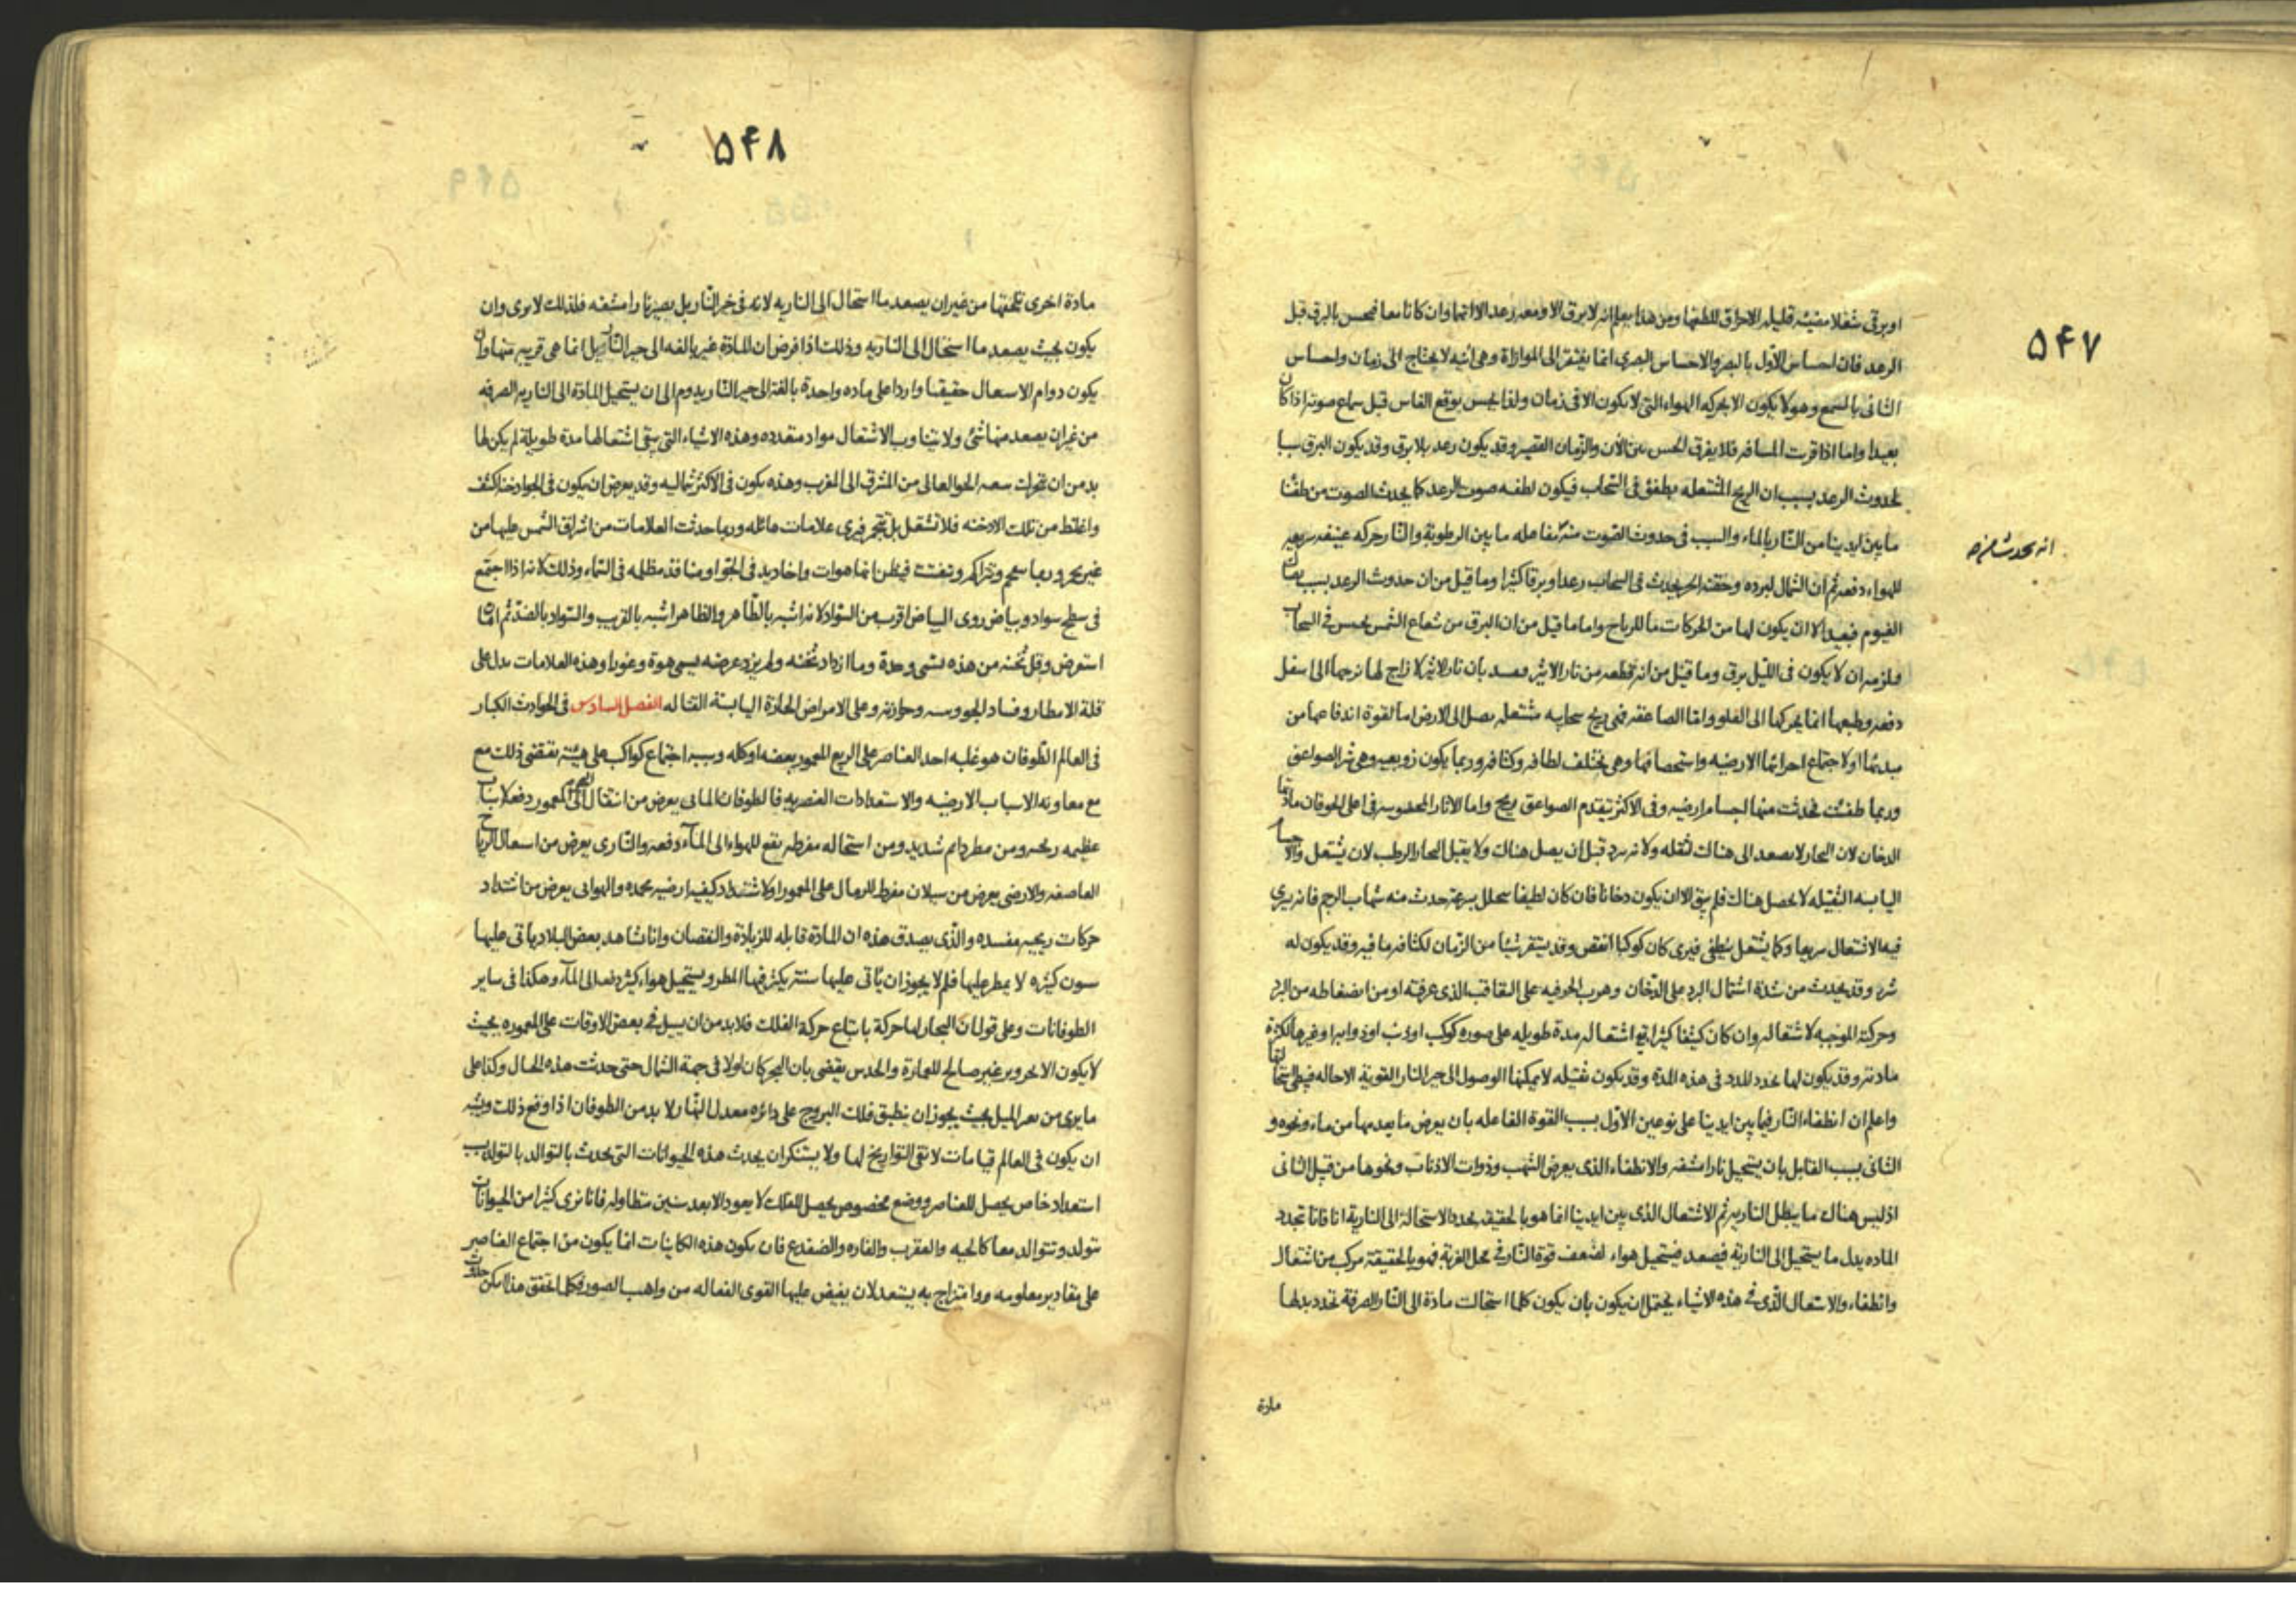 ۵۴۷
او برقی شعلا مضیئه قلیله الاحراق للطفها ومن هذا یعلم انه لا برق الا ومعه رعد الا انهما وان کانا معا فیحس بالبرق قبل
الرعد فان احساس الاول بالبصر والاحساس البصری انما یفتقر الی الموازاة وهی آنیه لا یحتاج الی زمان واحساس
الثانی بالسمع وهو لا یکون الا بحرکه الهواء التی لا یکون الا فی زمان ولذا یحس بوقع الفاس قبل سماع صوته اذا کان
بعیدا واما اذا قربت المسافه فلا یفرق الحس بین الآن والزمان القصیر وقد یکون رعد بلا برق وقد یکون البرق سببا
لحدوث الرعد بسبب ان الریح المشتعله یطفئ فی السحاب فیکون لطفه صوت الرعد کما یحدث الصوت من طفئنا
ما بین ایدینا من النار بالماء والسبب فی حدوث الصوت منه مفاعله ما بین الرطوبة والنار حرکه عنیفه سریعه
للهواء دفعه ثم ان الشمال لبرده وحقنه الحر یحدث فی السحاب رعدا وبرقا کثیرا وما قیل من ان حدوث الرعد بسبب
انه یحدث
الغیوم فبعید الا ان یکون لها من الحرکات ما للریاح واما ما قیل من ان البرق من شعاع الشمس یحبس فی السحاب
فلزمه ان لا یکون فی اللیل برق وما قیل من انه قطعه من نار الاثیر فبعید بان نار الاثیر لا زاج لها نزجها الی اسفل
دفعه وطبعها انما یحرکها الی العلو واما الصاعقه فهی ریح سحابیه مشتعله یصل الی الارض اما لقوة اندفاعها من
مبدئها او لاجتماع اجزائها الارضیه واستحصافها وهی یختلف لطافه وکثافه وربما یکون زوبعیه وهی شر الصواعق
وربما طفئت فحدثت منها اجسام ارضیه وفی الاکثر یتقدم الصواعق ریح واما الاثار المحسوسه فی اعلی الجو فان مادتها
الدخان لان البخار لا یصعد الی هناک لثقله ولانه یبرد قبل ان یصل هناک ولا یقبل البخار الرطب لان یشتعل والاجسام
الیابسه الثقیله لا یحصل هناک فلم یبق الا ان یکون دخانا فان کان لطیفا یتحلل بسرعة حدث منه شهاب الرجم فانه یری
فیه الاشتعال سریعا وکما یشتعل ینطفی فیری کان کوکبا انقض وقد یستقر شیئا من الزمان لکثافه ما فیه وقد یکون له
شرر وقد یحدث من شدة اشتمال البرد علی الدخان وهرب الحر فیه علی التعاقب الذی عرفته او من انضغاطه من البرد
وحرکة الموجبه لاشتعاله وان کان کثیفا کثیرا بقی اشتعاله مدة طویله علی صوره کوکب او ذنب او ذوابه او غیرها لکثرة
مادته وقد یکون لها تجدد المدد فی هذه المدة وقد یکون ثقیله لا یمکنها الوصول الی حیز النار القویة الاحاله فیطئ
واعلم ان انطفاء النار فیما بین ایدینا علی نوعین الاول بسبب القوة الفاعله بان یعرض ما یعدمها من ماء ونحوه و
الثانی بسبب القابل بان یستحیل نارا مشفه والانطفاء الذی یعرض الشهب وذوات الاذناب ونحوها من قبیل الثانی
اذ لیس هناک ما یبطل الناریه ثم الاشتعال الذی بین ایدینا انما هو بالحقیقه تجدد الاستحالة الی الناریة انا فانا تجدد
الماده بدل ما یستحیل الی الناریة فیصعد فیستحیل هواء لضعف قوة النار فی محل الغربة فهو بالحقیقة مرکب من اشتعال
وانطفاء والاشتعال الذی فی هذه الاشیاء یحتمل ان یکون بان یکون کلما استحالت مادة الی النار الصرفة تجدد بدلها
مادة
۵۴۸
مادة اخری تخلفها من غیر ان یصعد ما استحال الی الناریه لانه فی حیز النار بل یصیر نارا مشفه فلذلک لا یری وان
یکون بحیث یصعد ما استحال الی الناریه وذلک اذا فرض ان للمادة غیر بالغه الی حیز النار بل انما هی قریبه منها وان
یکون دوام الاشتعال حقیقیا واردا علی ماده واحدة بالغة الی حیز النار یدوم الی ان یستحیل المادة الی الناریه الصرفه
من غیر ان یصعد منها شئ ولا یتناوب الاشتعال مواد متعدده وهذه الاشیاء التی یبقی اشتعالها مدة طویلة لم یکن لها
بد من ان تحرک سعه الجو العالی من المشرق الی المغرب وهذه یکون فی الاکثر شمالیه وقد یعرض ان یکون فی الجو ادخنة اکثف
واغلظ من تلک الادخنه فلا تشتعل بل تتجمر فیری علامات هائله وربما حدثت العلامات من اشراق الشمس علیها من
غیر تجمر وربما تراکم وتفتت فیظن انها هوات واخادید فی الجو او منافذ مظلمه فی السماء وذلک لانه اذا اجتمع
فی سطح سواد وبیاض روی البیاض اقرب من السواد لانه اشبه بالظاهر والظاهر اشبه بالقرب والسواد بالضد ثم اذا
استعرض وقل ثخنه من هذه تسمی وهدة وما ازداد ثخنه ولم یزد عرضه یسمی هوة وغورا وهذه العلامات یدل علی
قلة الامطار وفساد الجو ویبسه وحرارته وعلی الامراض الحادة الیابسة القتاله الفصل السادس فی الحوادث الکبار
فی العالم الطوفان هو غلبه احد العناصر علی الربع المعمور بعضه او کله وسببه اجتماع کواکب علی هیئة تقتضی ذلک مع
مع معاونه الاسباب الارضیه والاستعدادات العنصریه فالطوفان المائی یعرض من انتقال البحر الی المعمور دفعة لاسباب
عظیمه ریحیه ومن مطر دائم شدید ومن استحاله مفرطه تقع للهواء الی الماء دفعه والناری یعرض من اشتعال الریاح
العاصفه والارضی یعرض من سیلان مفرط للرمال علی المعمور او لاشتداد کیفیه ارضیه مجمده والهوائی یعرض من اشتداد
حرکات ریحیه مفسده والذی یصدق هذه ان المادة قابله للزیادة والنقصان وانا نشاهد بعض البلاد یاتی علیها
سنون کثیره لا یمطر علیها فلم لا یجوز ان یأتی علیها سنة یکثر فیها المطر ویستحیل هواء کثیر دفعة الی الماء وهکذا فی سایر
الطوفانات وعلی قول ان البحار لها حرکة باتباع حرکة الفلک فلا بد من ان یسیل فی بعض الاوقات علی المعموره بحیث
لا یکون الاخر وبر غیر صالح للعمارة والحدس یقضی بان البحر کان اولا فی جهة الشمال حتی حدثت هذه الحال وکذا علی
ما یری من تغیر المیل بحیث یجوز ان ینطبق فلک البروج علی دائره معدل النهار لا بد من الطوفان اذا وقع ذلک ویشبه
ان یکون فی العالم قیامات لا تفی التواریخ لها ولا یستنکر ان یحدث هذه الحیوانات التی یحدث بالتوالد بالتولد بسبب
استعداد خاص یحصل للعناصر ووضع مخصوص یحصل للفلک لا یعود الا بعد سنین متطاوله فانا نری کثیرا من الحیوانات
تتولد وتتوالد معا کالحیه والعقرب والفاره والضفدع فان یکون هذه الکاینات انما یکون من اجتماع العناصر
علی مقادیر معلومه وامتزاج به یستعد لان یفیض علیها القوی الفعاله من واهب الصور فکلما تحقق هذا امکن حدوث